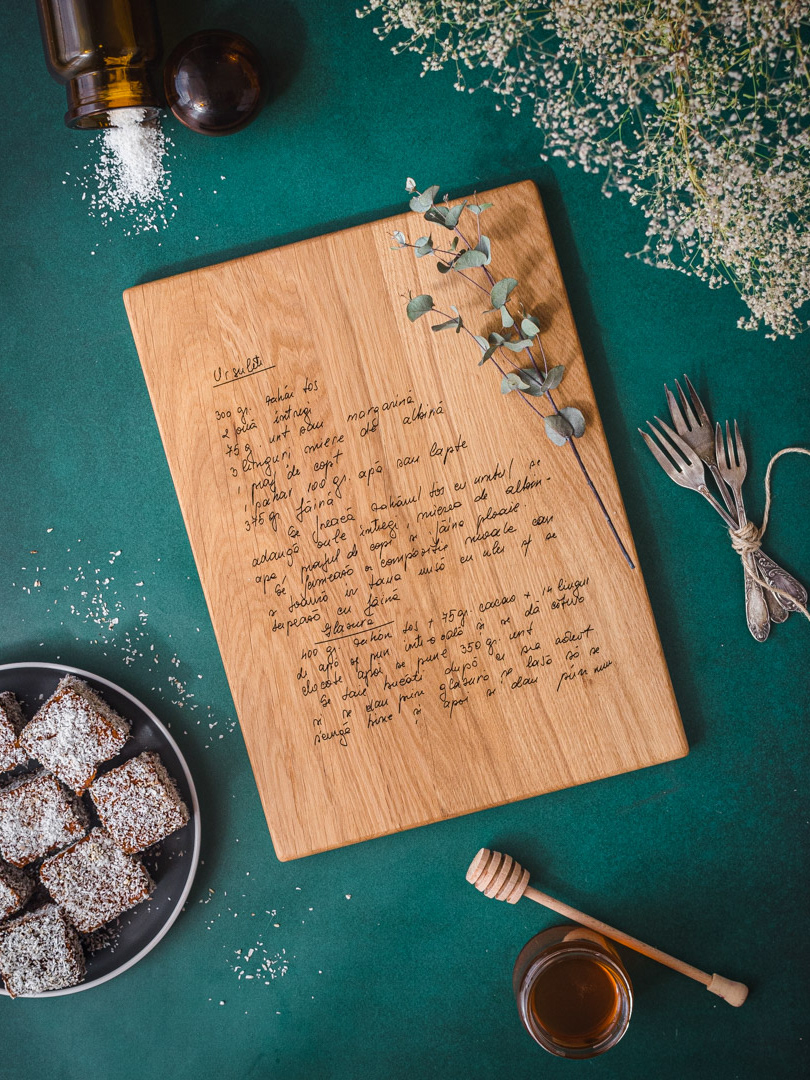 Ursuleti
300 gr. zahăr tos
2 ouă întregi
75 g. unt sau margarină
3 linguri miere de albină
1 praf de copt
1 pahar 100 gr. apă sau lapte
375 gr făină
Se freacă zahărul tos cu untul, se
adaugă ouăle întregi, mierea de albin-
apa, praful de copt și făina ploaie.
Se formează o compoziție moale care
se toarnă în tava unsă cu ulei și se
tapează cu făină
Glazura
400 gr. zahăr tos + 75 gr. cacao + 14 linguri
de apă se pun într-o oală și se dă cotuva
clocote apoi se pune 350 gr. unt
Se taie bucăți după ce s-a răcit
și se dau prin glazură se lasă să se
scurgă bine și apoi se dau prin nucă